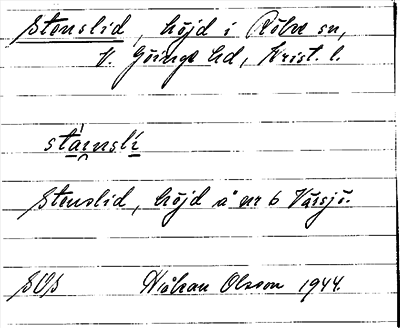 Stenslid, höjd i Röke sn,
V. Göinge hd, Krist. l.
stáinslí
Stenslid, höjd å nr 6 Värsjö.
SOS Håkan Olsson 1944.